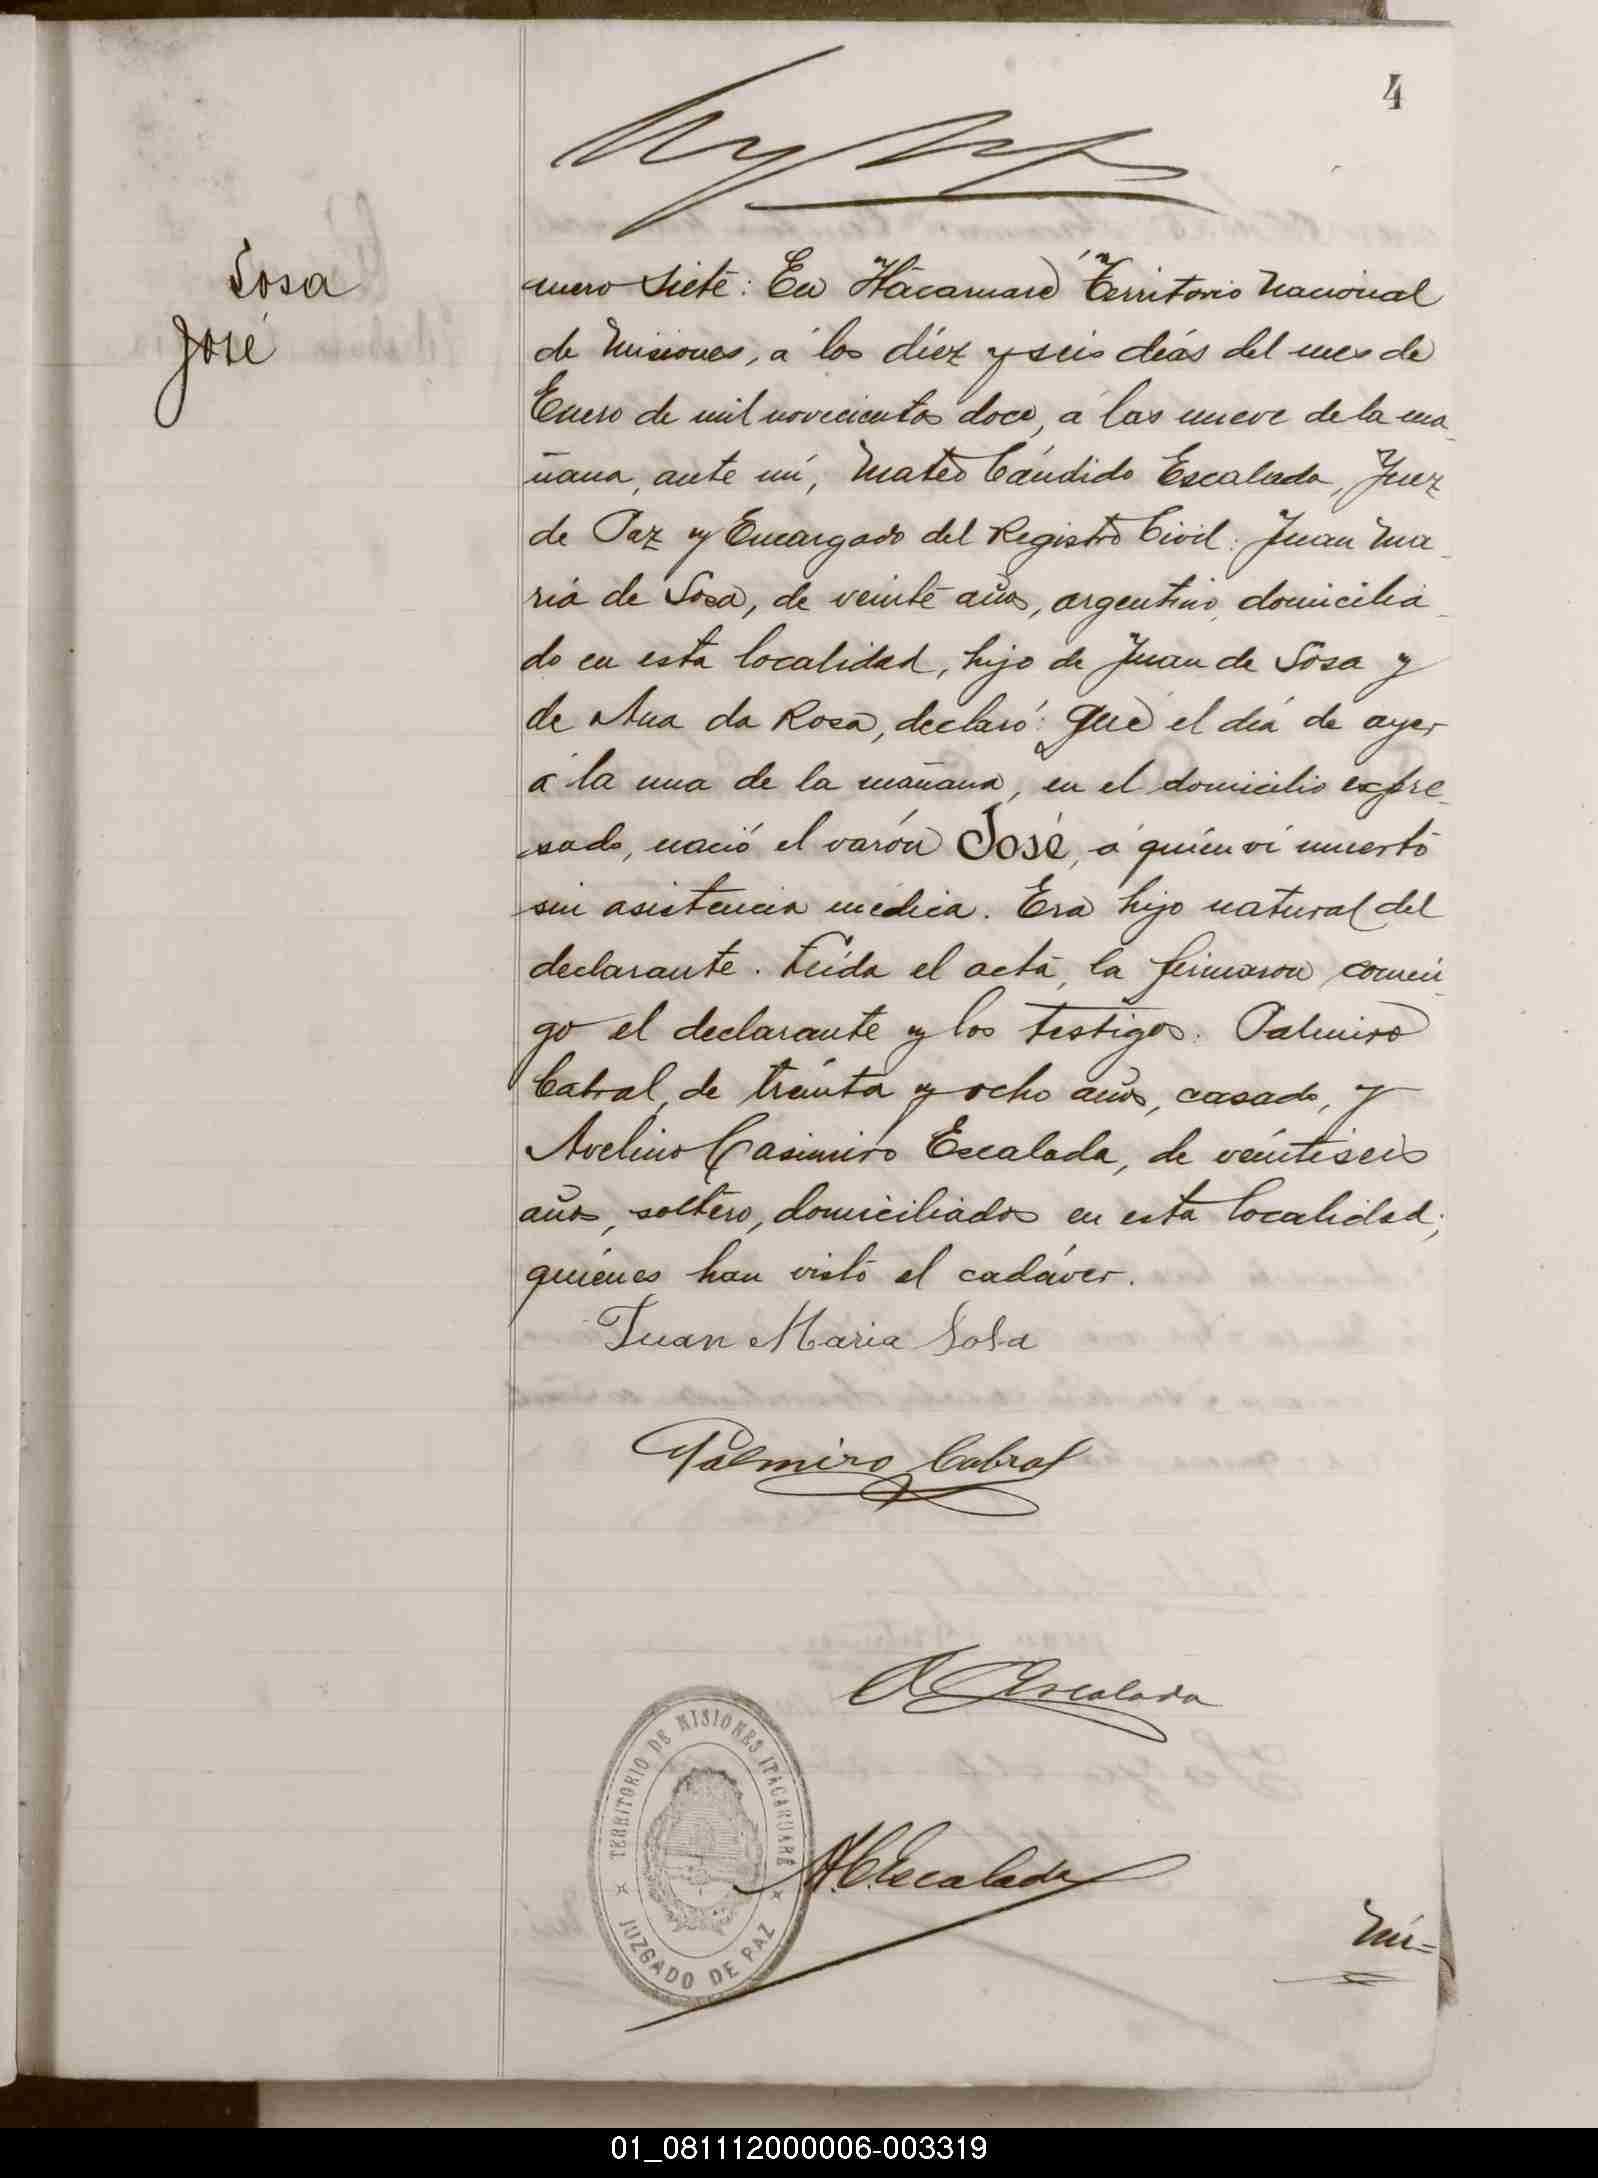 4
Sosa
José
mero Siete: En Itacaruaré Territorio Nacional
de Misiones, á los diez y seis días del mes de
Enero de mil novecientos doce, á las nueve de la ma-
ñana, ante mí, Mateo Cándido Escalada, Juez
de Paz y Encargado del Registro Civil: Juan Ma-
ría de Sosa, de veinte años, argentino, domicilia-
do en esta localidad, hijo de Juan de Sosa y
de Ana da Rosa, declaró: Que el día de ayer
á la una de la mañana, en el domicilio expre-
sado, nació el varón José, á quién ví muerto
sin asistencia médica. Era hijo natural del
declarante. Leída el acta, la firmaron conmi-
go el declarante y los testigos: Palmiro
Cabral, de treinta y ocho años, casado, y
Avelino Casimiro Escalada, de veintiseis
años, soltero, domiciliados en esta localidad;
quiénes han visto el cadáver.
Juan Maria Sosa
Palmiro Cabral
A Escalada
TERRITORIO DE MISIONES ITACARUARÉ
JUZGADO DE PAZ
M.C.Escalada
Nú=
01_081112000006-003319